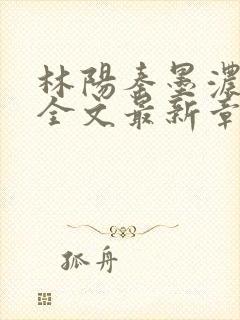 林陽秦墨濃
全文最新章
孤舟